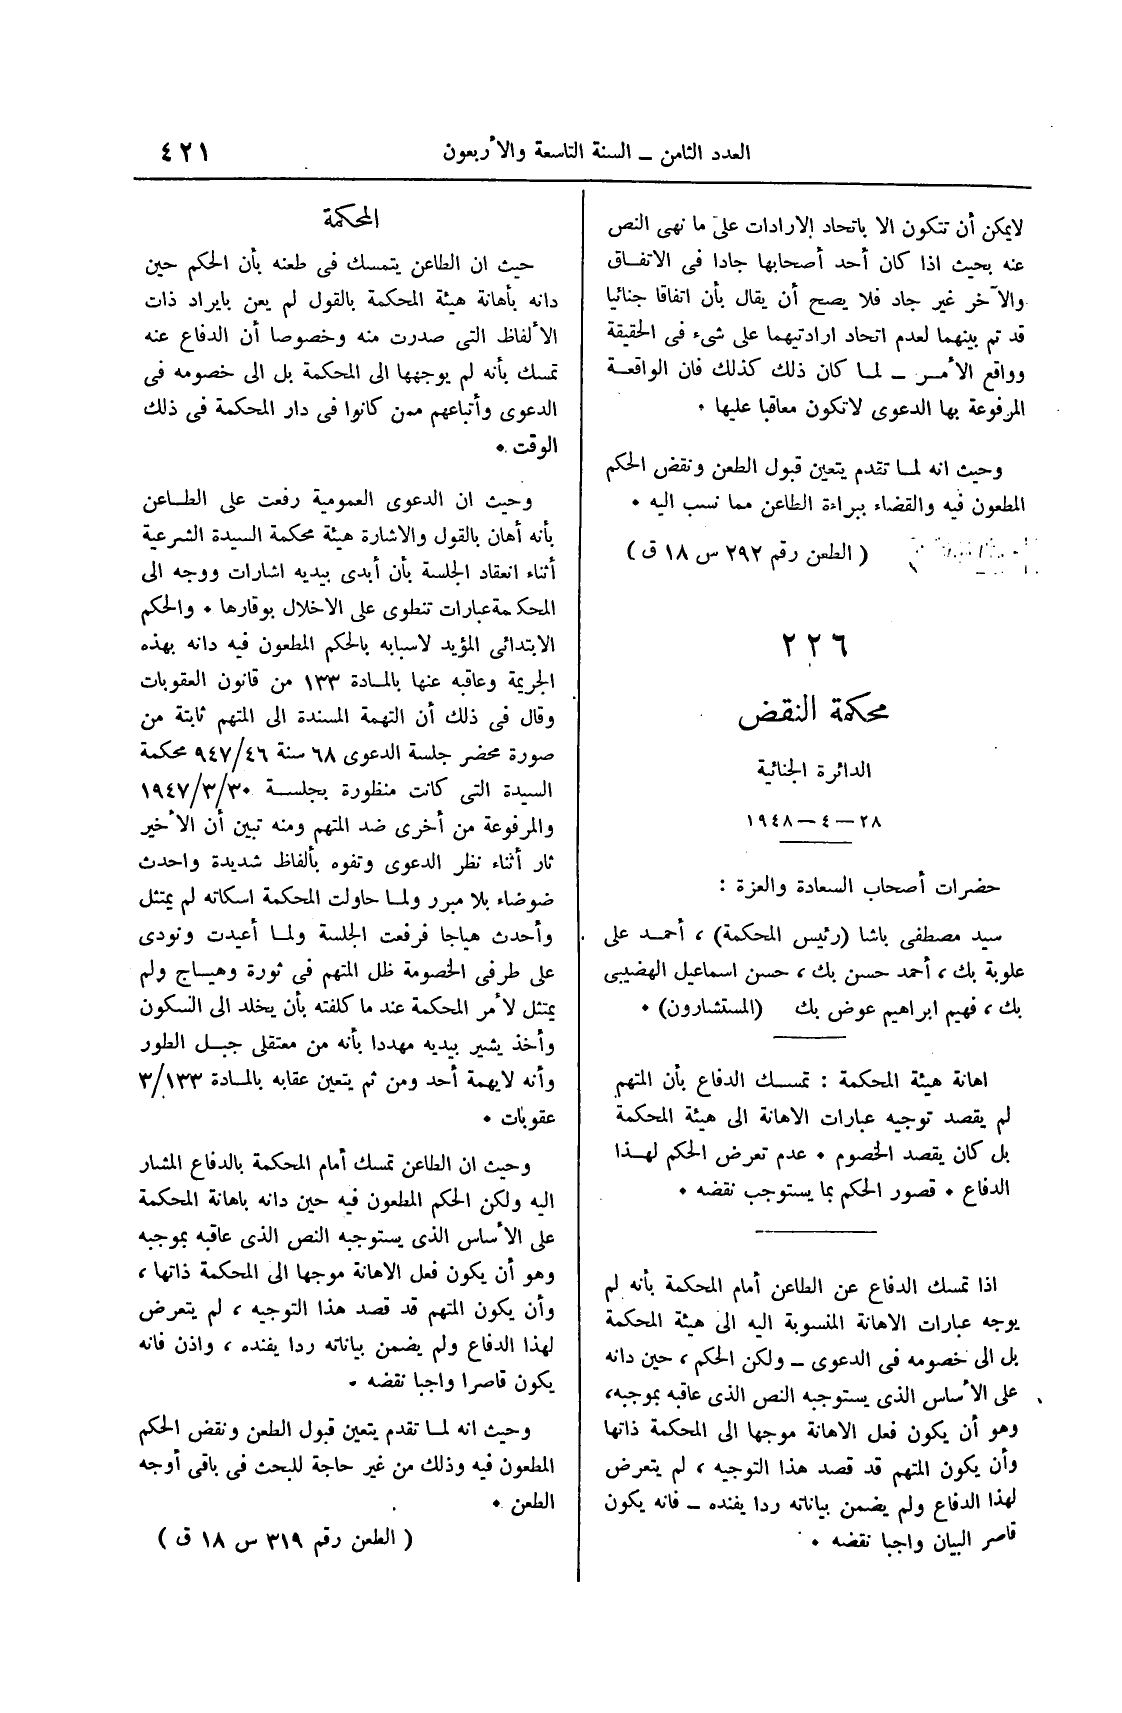 العدد الثامن ــ السنة التاسعة والأربعون
٤٢١
لايمكن أن تتكون الا باتحاد الارادات على ما نهى النص
عنه بحيث اذا كان أحد أصحابها جادا فى الاتفـاق
والآخر غير جاد فلا يصح أن يقال بأن اتفاقا جنائيا
قد تم بينهما لعدم اتحاد ارادتيهما على شىء فى الحقيقة
وواقع الأمـر ــ لمـا كان ذلك كذلك فان الواقعـة
المرفوعة بها الدعوى لاتكون معاقبا عليها ٠
وحيث انه لمـا تقدم يتعين قبول الطعن ونقض الحكم
المطعون فيه والقضاء ببراءة الطاعن مما نسب اليه ٠
( الطعن رقم ٢٩٢ س ١٨ ق )
٢٢٦
محكمة النقض
الدائرة الجنائية
٢٨ – ٤ – ١٩٤٨
حضرات أصحاب السعادة والعزة :
سيد مصطفى باشا (رئيس المحكمة) ، أحمـد على
علوبة بك ، أحمد حسن بك ، حسن اسماعيل الهضيبى
بك ، فهيم ابراهيم عوض بك (المستشارون) ٠
اهانة هيئة المحكمة : تمسـك الدفاع بأن المتهم
لم يقصد توجيه عبارات الاهانة الى هيئة المحكمة
بل كان يقصد الخصوم ٠ عدم تعرض الحكم لهـذا
الدفاع ٠ قصور الحكم بما يستوجب نقضه ٠
اذا تمسك الدفاع عن الطاعن أمام المحكمة بأنه لم
يوجه عبارات الاهانة المنسوبة اليه الى هيئة المحكمة
بل الى خصومه فى الدعوى ــ ولكن الحكم ، حين دانه
على الأساس الذى يستوجبه النص الذى عاقبه بموجبه،
وهو أن يكون فعل الاهانة موجها الى المحكمة ذاتها
وأن يكون المتهم قد قصد هذا التوجيه ، لم يتعرض
لهذا الدفاع ولم يضمن بياناته ردا يفنده ــ فانه يكون
قاصر البيان واجبا نقضه ٠
المحكمة
حيث ان الطاعن يتمسك فى طعنه بأن الحكم حين
دانه بأهانة هيئة المحكمة بالقول لم يعن بايراد ذات
الألفاظ التى صدرت منه وخصوصا أن الدفاع عنه
تمسك بأنه لم يوجهها الى المحكمة بل الى خصومه فى
الدعوى وأتباعهم ممن كانوا فى دار المحكمة فى ذلك
الوقت ٠
وحيث ان الدعوى العمومية رفعت على الطـاعن
بأنه أهان بالقول والاشارة هيئة محكمة السيدة الشرعية
أثناء انعقاد الجلسة بأن أبدى بيديه اشارات ووجه الى
المحكمة عبارات تنطوى على الاخلال بوقارها ٠ والحكم
الابتدائى المؤيد لاسبابه بالحكم المطعون فيه دانه بهذه
الجريمة وعاقبه عنها بالمـادة ١٣٣ من قانون العقوبات
وقال فى ذلك أن التهمة المسندة الى المتهم ثابتة من
صورة محضر جلسة الدعوى ٦٨ سنة ٩٤٧/٤٦ محكمة
السيدة التى كانت منظورة بجلسـة ١٩٤٧/٣/٣٠
والمرفوعة من أخرى ضد المتهم ومنه تبين أن الأخير
ثار أثناء نظر الدعوى وتفوه بألفاظ شديدة واحدث
ضوضاء بلا مبرر ولمـا حاولت المحكمة اسكاته لم يمتثل
وأحدث هياجا فرفعت الجلسة ولمـا أعيدت ونودى
على طرفى الخصومة ظل المتهم فى ثورة وهيـاج ولم
يمتثل لأمر المحكمة عند ما كلفته بأن يخلد الى السكون
وأخذ يشير بيديه مهددا بأنه من معتقلى جبـل الطور
وأنه لايهمة أحد ومن ثم يتعين عقابه بالمـادة ٣/١٣٣
عقوبات ٠
وحيث ان الطاعن تمسك أمام المحكمة بالدفاع المشار
اليه ولكن الحكم المطعون فيه حين دانه باهانة المحكمة
على الأساس الذى يستوجبه النص الذى عاقبه بموجبه
وهو أن يكون فعل الاهانة موجها الى المحكمة ذاتها ،
وأن يكون المتهم قد قصد هذا التوجيه ، لم يتعرض
لهذا الدفاع ولم يضمن بياناته ردا يفنده ، واذن فانه
يكون قاصرا واجبا نقضه ٠
وحيث انه لمـا تقدم يتعين قبول الطعن ونقض الحكم
المطعون فيه وذلك من غير حاجة للبحث فى باقى أوجه
الطعن ٠
( الطعن رقم ٣١٩ س ١٨ ق )